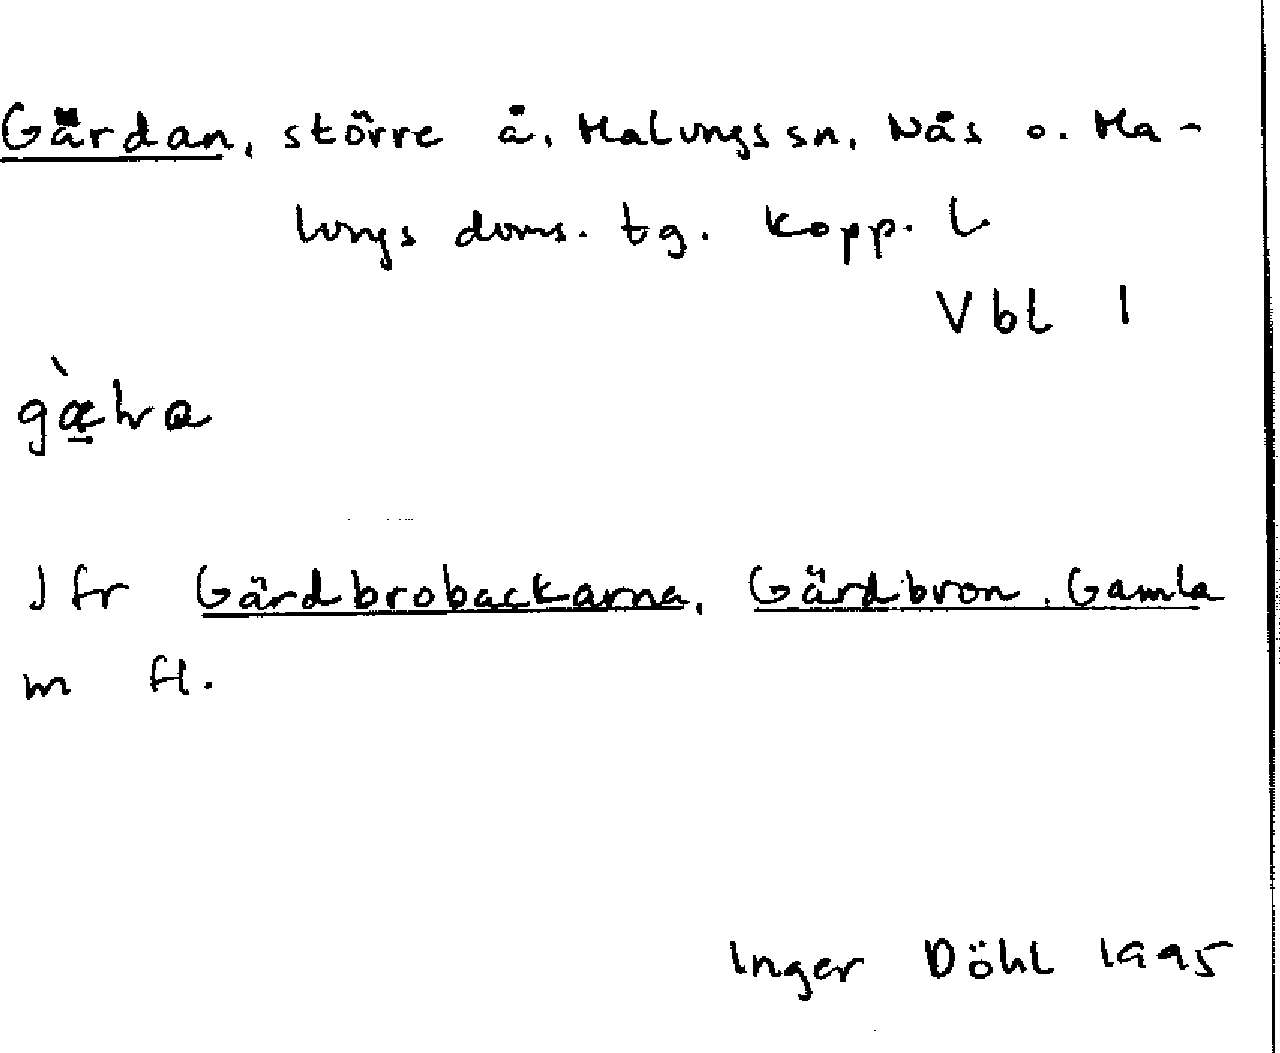 Gärdan, större å, Malungs sn, Nås o. Ma-
lungs doms. tg. Kopp. l
Vbl 1
Jfr Gärdbrobackarna, Gärdbron, Gamla
m fl.
Inger Döhl 1995